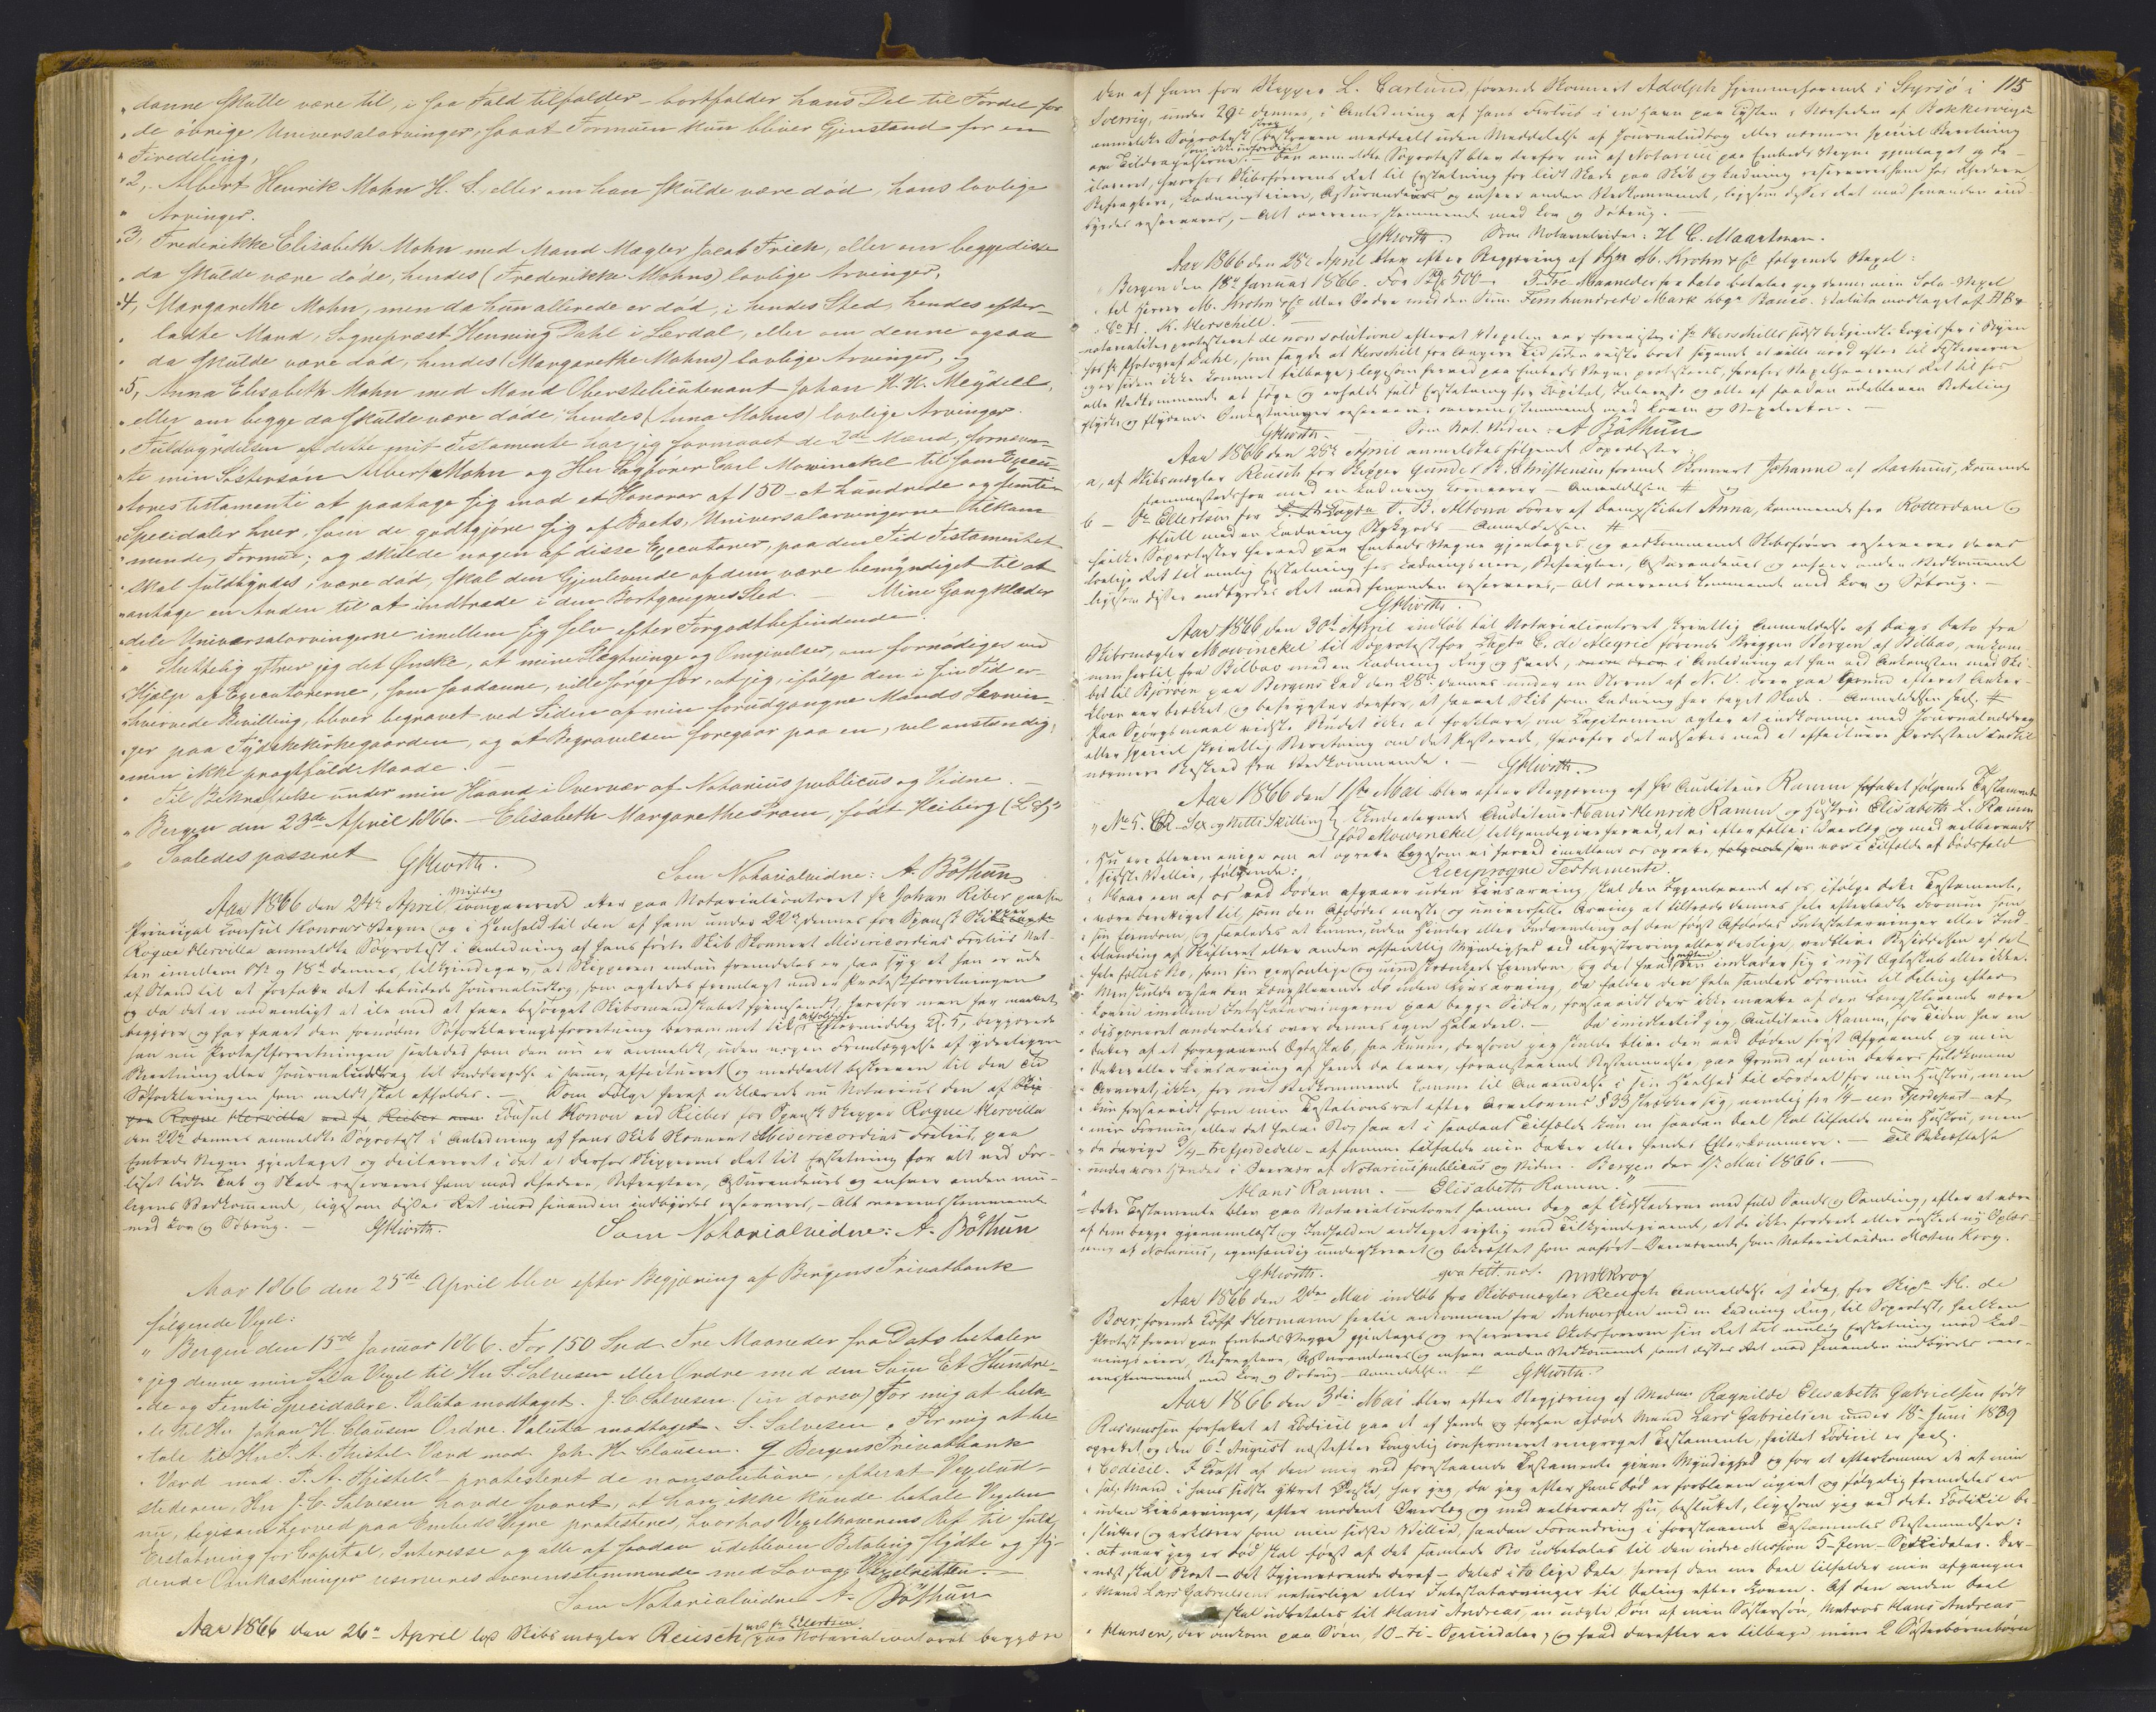 „danne skulle være til, i saa Fald tilfalder – bortfalder hans Del til Fordel for
„de øvrige Universalarvinger, saaat Formuen kun bliver Gjenstand for en
„Firedeling,
„2, Albert Henrik Mohn H. S., eller om han skulde være død, hans lovlige
„Arvinger.
„3, Frederikke Elisabeth Mohn med Mand Mægler Jacob Frich, eller om begge disse
„da skulde være døde, hendes (Frederikke Mohns) lovlige Arvinger,
„4, Margarethe Mohn, men da hun allerede er død, i hendes Sted, hendes efter-
„ladte Mand, Sogneprest Henning Dahl i Lærdal, eller om denne ogsaa
„da skulde være død, hendes (Margarethe Mohns) lovlige Arvinger, og
„5, Anna Elisabeth Mohn med Mand Oberstelieutenant Johan K. K. Meydell,
„eller om begge da skulde være døde, hendes (Anna Mohns) lovlige Arvinger.
„Fuldbyrdelsen af dette mit Testamente har jeg formaaet de 2de Mænd, fornævn-
„te min Søstersøn Albert Mohn og Hr Sagfører Carl Mowinckel til som Execu-
„tores testamenti at paatage sig mod et Honorar af 150 – et hundrede og femti –
„Specidaler hver, som de godtgjøre sig af Boets, Universalarvingerne tilkom-
„mende, Formue; og skulde nogen af disse Executorer, paa den Tid Testamentet
„skal fuldbyrdes, være død, skal den Gjenlevende af dem være bemyndiget til at
„antage en Anden til at indtræde i den Bortgangnes Sted. – Mine Gangklæder
„dele Universalarvingerne imellem sig selv efter Forgodtbefindende.
„Sluttelig yttrer jeg det Ønske, at mine Slægtninge og Omgivelser, om fornødiges ved
„Hjælp af Executorerne, som saadanne, ville sørge for, at jeg, ifølge den i sin Tid er-
„hvervede Bevilling, bliver begravet ved Siden af min forudgangne Mands Levnin-
„ger paa Tydskekirkegaarden, og at Begravelsen foregaar paa en, vel anstændig,
„men ikke pragtfuld Maade. –
„Til Bekræftelse under min Haand i Overvær af Notarius publicus og Vidne. –
„Bergen den 23de April 1866. – Elisabeth Margarethe Pram, født Heiberg (L. S.)"
„Saaledes passeret
GHiorth. Som Notarialvidne: A. Böthun
Aar 1866 den 24de April Middag comparerede atter paa Notarialcontoret Hr Johan Rieber paa sin
Principal Consul Konows Vegne og i Henhold til den af ham under 22de dennes for Spansk Skibscapt.
Roque Mervilla anmeldte Søprotest i Anledning af hans førte Skib Skonnert Misericordias Forliis Nat-
ten imellem 17de og 18de dennes, tilkjendegav, at Skipperen endnu fremdeles er saa syg at han er ude
af Stand til at forfatte det bebudede Journaludtog, som agtedes fremlagt under Protestforretningen
og da det er nødvendigt at ile med at faae besørget
begjere og har faaet den fornødne Søforklaringsforretning berammet til afholdelse Eftermiddag Kl. 5, begjerede
han nu Protestforretningen saaledes som den nu er anmeldt, uden nogen Fremlæggelse af yderligere
Beretning eller Journaludtog til Inddragelse i samme, effectueret og meddeelt beskreven til den Tid
Søforklaringen som meldt skal afholdes. – Som Følge heraf erklærede nu Notarius den af
Roque Mervilla ved Hr Rieber Consul Konow ved Rieber for Spansk Skipper Roque Mervilla
den 22de dennes anmeldte Søprotest i Anledning af hans Skib Skonnert Misericordias Forliis, paa
Embeds Vegne gjentaget og declareret i det at derhos Skipperens Ret til Erstatning for alt ved For-
liset lidte Tab og Skade reserveres ham mod Rhedere, Befragtere, Assurandeurer og enhver anden mu-
ligens Vedkommende, ligesom disses Ret imod hinanden indbyrdes reserveret, – Alt overensstemmende
med Lov og Søbrug. – GHiorth. Som Notarialvidne: A. Böthun
Aar 1866 den 25de April blev efter Begjæring af Bergens Privatbank
følgende Vexel:
„Bergen den 15de Januar 1866. For 150 Spd. Tre Maaneder fra Dato betaler
„jeg denne min Sola Vexel til Hr S. Salvesen eller Ordre med den Sum Et Hundre-
„de og Femti Specidalere. Valuta modtaget. J. C. Salvesen. (in dorso) For mig at beta-
„le til Hr Johan H. Clausen Ordre. Valuta modtaget. S. Salvesen. For mig at be-
„tale til Hr P. A. Thistel. Værd mod. Joh. H. Clausen. Bergens Privatbank
„Værd mod. P. A. Thistel." – protesteret de non solutione, efterat Vexelud-
stederen, Hr J. C. Salvesen havde svaret, at han ikke kunde betale Vexlen
nu, ligesom herved paa Embeds Vegne protesteres, hvorhos Vexelhaverens Ret til fuld
Erstatning for Capital, Interesse og alle af saadan udebleven Betaling flydte og fly-
dende Omkostninger reserveres overensstemmende med Lov og Vexelretten. –
Som Notarialvidne A. Böthun
Aar 1866 den 26de April lod Skibsmægler Reusch ved Hr Ellertsen paa Notarialcontoret begjere
115
den af ham for Skipper L. Carlund førende Skonnert Adolph hjemmehørende i Styrsö i
Sverrig, under 29de dennes, i Anledning af hans Forliis i en Havn paa Kysten i Nærheden af
anmeldte Søprotest beskreven meddeelt uden Meddelelse af Journaludtog eller nærmere speciel Beretning
om Tildragelserne. – Den anmeldte Søprotest blev derfor nu af Notarius paa Embeds Vegne gjentaget og de-
clareret, hvorhos Skibsførerens Ret til Erstatning for lidt Skade paa Skib og Ladning reserveres ham hos Rhedere
Befragtere, Ladningseiere, Assurandeurs og enhver anden Vedkommende, ligesom disses Ret mod hinanden ind-
byrdes reserveres, – Alt overensstemmende med Lov og Søbrug. –
GHiorth. Som Notarialvidne: H. C. Maartman.
Aar 1866 den 28de April blev efter Begjæring af Hrr M. Krohn & Co følgende Vexel:
„Bergen den 18de Januar 1866. For 500 – Tre Maaneder fra Dato betaler jeg denne min Sola-Vexel
„til Herrer M. Krohn & Co eller Ordre med den Sum Femhundrede Mark Hbgr Banco. Valuta modtaget af
K. Herschell." –
notarialiter protesteret de non solutione efterat Vexelen var foreviist i Hr Herschells sidst bekjendte Logis her i Byen
hos Hr Photograf Dahl, som sagde at Herschell for længere Tid siden reiste bort
og er siden ikke kommet tilbage; ligesom herved paa Embeds Vegne protesteres, hvorhos Vexelhaverens Ret til hos
alle Vedkommende at søge og erholde fuld Erstatning for Capital, Interesse og alle af saadan udebleven Betaling
flydte og flydende Omkostninger reserveres, overensstemmende med Loven og Vexelretten. –
GHiorth. Som Not. Vidne: A. Böthun
Aar 1866 den 28de April anmeldtes følgende Søprotester:
a, af Skibsmægler Reusch for Skipper Gunder R. Christensen førende Skonnert Johanne af Aarhuus, kommende
sammestedsfra med en Ladning Kornvarer – Anmeldelsen # og
b – Hr Ellertsen for J. B. Altona Fører af Dampskibet Anna, kommende fra Rotterdam og
Hull med en Ladning Stykgods – Anmeldelsen #
hvilke Søprotester herved paa Embeds Vegne gjentages, og vedkommende Skibsførere reserveres deres
lovlige Ret til mulig Erstatning hos Ladningseiere, Befragtere, Assurandeurs og enhver anden Vedkommende
ligesom disses indbyrdes Ret mod hinanden reserveres, – Alt overensstemmende med Lov og Søbrug. –
GHiorth.
Aar 1866 den 30te April indløb til Notarialcontoret skriftlig Anmeldelse af Dags Dato fra
Skibsmægler Mowinckel til Søprotest for Capt. C. de Alegrie førende Briggen Bergen af Bilbao, ankom-
men hertil fra Bilbao med en Ladning Rug og Hvede, i Anledning at han ved Ankomsten med Ski-
bet til Bjørøen paa Bergens Led den 28de dennes under en Storm af N. V. drev paa Grund efterat Anker-
kloen var brækket og befrygter derfor, at saavel Skib som Ladning har taget Skade. – Anmeldelsen sal. #
Paa Spørgsmaal vidste Budet ikke at forklare, om Capitainen agter at indkomme med Journaluddrag
eller speciel skriftlig Beretning om det Passerede, hvorfor det udsattes med at effectuere Protesten indtil
nærmere Besked fra Vedkommende. – GHiorth.
Aar 1866 den 1ste Mai blev efter Begjæring af Hr Auditeur Ramm forfattet følgende Testamente
„No 5. – Sex og Nitti Skilling Undertegnede Auditeur Hans Henrik Ramm og Hustru Elisabeth L. Ramm
„ød Mowinckel tilkjendegive herved, at vi efter fælles Overlæg og med velberaadt
„Hu ere blevne enige om at oprette ligesom vi herved imellem os oprette, som vor i Tilfælde af Dødsfald
„sidste Villie, følgende: Reciproque Testamente.
„Hvem en af os ved Døden afgaaer uden Livsarving skal den Igjenlevende af os, ifølge dette Testamente,
„være berettiget til, som den Afdødes eneste og universelle Arving at tiltræde dennes hele efterladte Formue som
„sin Eiendom, og saaledes at kunne uden Hinder eller Indvending af den først Afdødes Intestatarvinger eller Ind-
„blanding af Skifteret eller anden offentlig Myndighed ved Registrering eller deslige, vedblive Besiddelsen af det
„hele fælles Bo, som sin personlige og uindskrænkede Eiendom, og det hvad enten den indlader sig i nyt Ægteskab eller ikke.
„Men skulde ogsaa den Længstlevende dø uden Livsarving, da falder den hele samlede Formue til Deling efter
„Loven imellem Intestatarvingerne paa begge Sider, forsaavidt der ikke maatte af den Længstlevende være
„disponeret anderledes over dennes egen Halvdeel. – Da imidlertid jeg, Auditeur Ramm, for Tiden har en
„Datter af et foregaaende Ægteskab, saa kunne, dersom jeg skulde blive den ved Døden først Afgaaende og min
„Datter eller Livsarving af hende da lever, foranstaaende Bestemmelser, paa Grund af min Datters fuldkomne
„Arveret, ikke, for mit Vedkommende komme til Anvendelse i sin Heelhed til Fordeel for min Hustru, men
„kun forsaavidt som min Testationsret efter Arvelovens § 33 strækker sig, nemlig for 1/4 – een Fjerdepart – af
„min Formue, eller det halve Bo, saa at i saadant Tilfælde kun en saadan Deel skal tilfalde min Hustru, men
„de øvrige 3/4 – tre fjerdedele – af samme tilfalde min Datter eller hendes Efterkommere. – Til Bekræftelse
„under vore Hænder i Overvær af Notarius publicus og Vidne. Bergen den 1ste Mai 1866. –
„Hans Ramm. – Elisabeth Ramm." –
– dette Testamente blev paa Notarialcontoret samme Dag af Udstederne med fuld Sands og Samling, efter at være
af dem begge gjennemlæst og Indholden vedtaget rigtig med Tilkjendegivende, at de ikke fordrede eller ønskede ny Oplæs-
ning af Notarius, egenhændig underskrevet og bekræftet som anført – Overværende som Notarialvidne Morten Krog.
GHiorth. qva test. not. MWKrog
Aar 1866 den 2den Mai indløb fra Skibsmægler Reusch Anmeldelse af idag, for Skipr H. de
Boer, førende Koff Hermann hertil ankommen fra Antwerpen med en Ladning Rug, til Søprotest, hvilken
Protest herved paa Embeds Vegne gjentages og reserveres Skibsføreren sin Ret til mulig Erstatning mod Lad-
ningseiere, Befragtere, Assurandeurs og enhver anden Vedkommende samt disses Ret mod hinanden indbyrdes over-
ensstemmende med Lov og Søbrug – Anmeldelsen # GHiorth.
Aar 1866 den 3die Mai blev efter Begjæring af Madam Ragnilde Elisabeth Gabrielsen født
Rasmussen forfattet et Codicil paa et af hende og hendes afdøde Mand Lars Gabrielsen under 18de Juni 1839
oprettet og den 6te August næstefter Kongelig confirmeret reciproqt Testamente, hvilket Codicil er saal.
„Codicil. I Kraft af den mig ved foranstaaende Testamente givne Myndighed og for at efterkomme et af min
„sal. Mand i hans sidste yttret Ønske, har jeg, da jeg efter hans Død er forbleven ugivt og følgelig fremdeles er
„uden Livsarvinger, efter modent Overlæg og med velberaadt Hu, besluttet, ligesom jeg ved dette Codicil be-
„slutter og erklærer som min sidste Villie, saadan Forandring i foranstaaende Testamentes Bestemmelser:
„at naar jeg er død skal først af det samlede Bo udbetales til den indre Mission 5 – fem – Specidaler. Der-
„næst skal Boet – det Igjenværende deraf – deles i to lige Dele, hvoraf den ene Deel tilfalder min afgangne
„Mand Lars Gabrielsens naturlige eller Intestatarvinger til Deling efter Loven. Af den anden Deel
skal udbetales til Hans Andreas, en uægte Søn af min Søstersøn, Matros Hans Andreas
„Hansen, der omkom paa Søen, 10 – ti – Specidaler; og hvad derefter er tilbage mine 2 Søsterbørnebørn